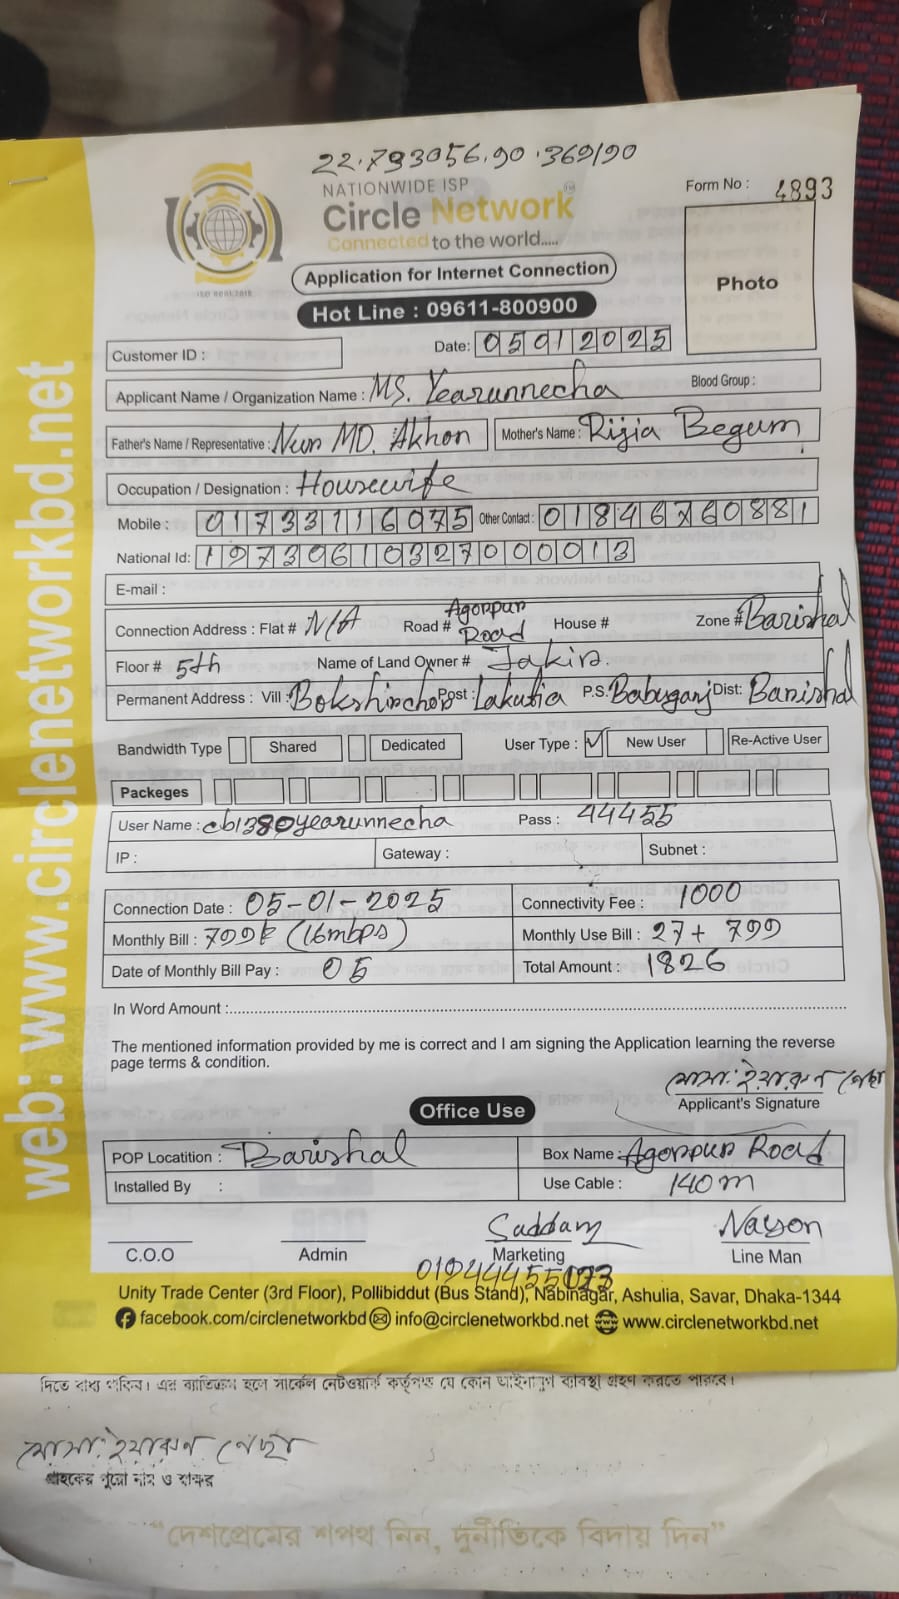 22.793056,90.369190
NATIONWIDE ISP
Circle Network
Connected to the world.....
Form No : 4893
Photo
ISO 9001:2015
Application for Internet Connection
Hot Line : 09611-800900
Customer ID :
Date: 05012025
Applicant Name / Organization Name : MS. Yearunnecha Blood Group :
Father's Name / Representative : Nur MD. Akhon Mother's Name : Rijia Begum
Occupation / Designation : Housewife
Mobile : 01733116075 Other Contact : 01846760881
National Id: 19730610327000013
E-mail :
Connection Address : Flat # N/A Road # Agorpur Road House # Zone # Barishal
Floor # 5th Name of Land Owner # Jakir.
Permanent Address : Vill : Post : Lakutia P.S. Babuganj Dist: Barishal
Bandwidth Type Shared Dedicated User Type : ✓ New User Re-Active User
Packeges
User Name : cb1380yearunnecha Pass : 44455
IP : Gateway : Subnet :
Connection Date : 05-01-2025 Connectivity Fee : 1000
Monthly Bill : 799৳ (16mbps) Monthly Use Bill : 27+ 799
Date of Monthly Bill Pay : 05 Total Amount : 1826
In Word Amount :
The mentioned information provided by me is correct and I am signing the Application learning the reverse
page terms & condition.
মোসা: ইয়ারুন নেছা
Applicant's Signature
Office Use
POP Locatition : Barishal Box Name : Agorpur Road
Installed By : Use Cable : 140m
Saddam Nayon
C.O.O Admin Marketing Line Man
Unity Trade Center (3rd Floor), Pollibiddut (Bus Stand), Nabinagar, Ashulia, Savar, Dhaka-1344
facebook.com/circlenetworkbd info@circlenetworkbd.net www.circlenetworkbd.net
web: www.circlenetworkbd.net
দিতে বাধ্য থাকিব। এর ব্যতিক্রম হলে সার্কেল নেটওয়ার্ক কর্তৃপক্ষ যে কোন আইনানুগ ব্যবস্থা গ্রহণ করতে পারবে।
মোসা: ইয়ারুন নেছা
গ্রাহকের পুরো নাম ও স্বাক্ষর
"দেশপ্রেমের শপথ নিন, দুর্নীতিকে বিদায় দিন"